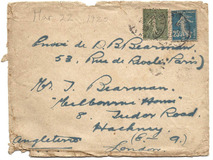 Mar. 22. 1925
Envoi de D. B. Bearman,
58, Rue de Rivoli (Paris)
Mr. J. Bearman.
"Melbourne House"
8 Tudor Road
Hackney
(E. 9.)
Angleterre
London